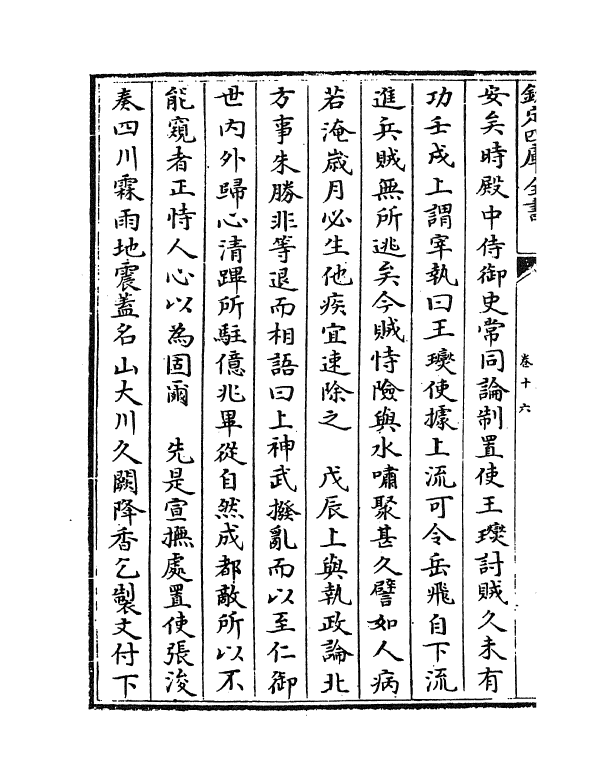 欽定四庫全書
卷十六
安矣時殿中侍御史常同論制置使王𤫉討賊久未有
功壬戌上謂宰執曰王𤫉使據上流可令岳飛自下流
進兵賊無所逃矣今賊恃險與水嘯聚甚久譬如人病
若淹歳月必生他疾宜速除之　戊辰上與執政論北
方事朱勝非等退而相語曰上神武撥亂而以至仁御
世内外歸心清蹕所駐億兆畢從自然成都敵所以不
能窺者正恃人心以為固爾　先是宣撫處置使張浚
奏四川霖雨地震蓋名山大川久闕降香乞製文付下